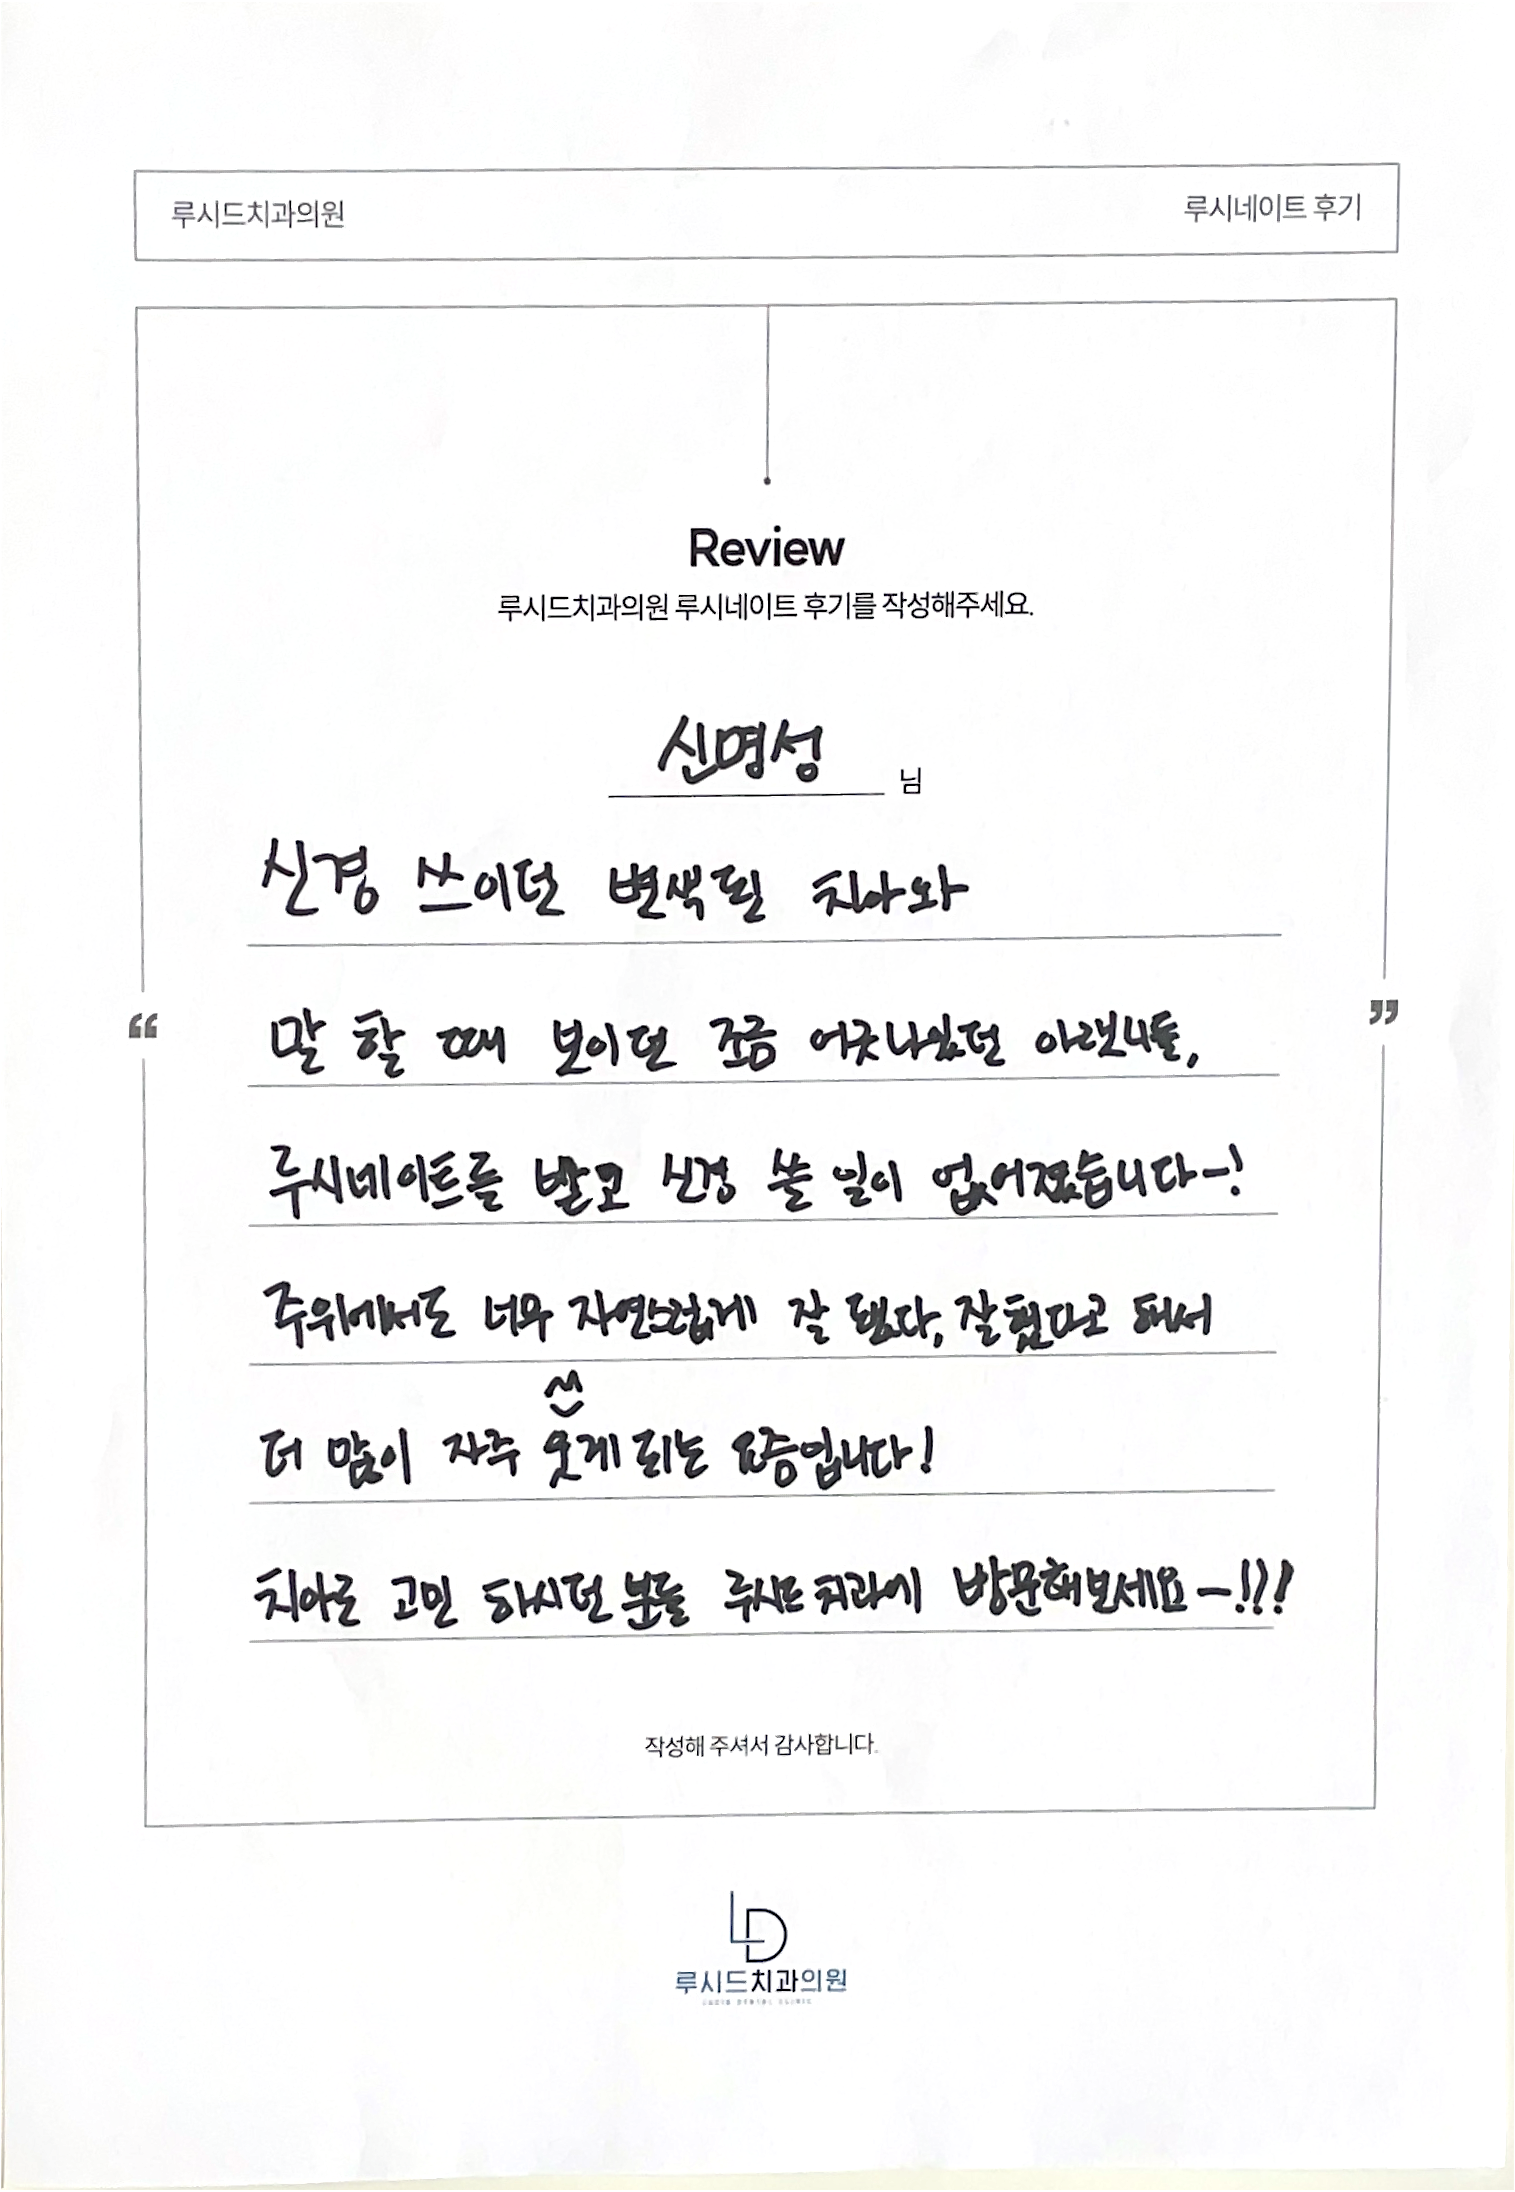 루시드치과의원
루시네이트 후기
Review
루시드치과의원 루시네이트 후기를 작성해주세요.
신명성 님
신경 쓰이던 변색된 치아와
“
말 할 때 보이던 조금 어긋나있던 아랫니들,
”
루시네이트를 받고 신경 쓸 일이 없어졌습니다-!
주위에서도 너무 자연스럽게 잘 됐다, 잘했다고 해서
더 많이 자주 웃게 되는 요즘입니다!
치아로 고민 하시던 분들 루시드 치과에 방문해보세요-!!!
작성해 주셔서 감사합니다.
LD
루시드치과의원